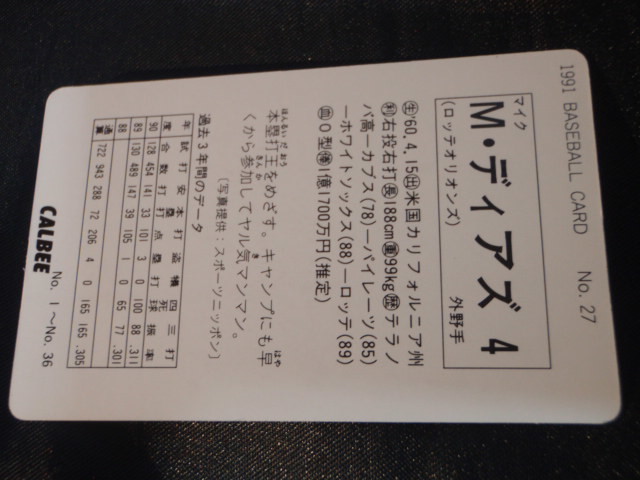 1991 BASEBALL CARD No. 27
マイク
M・ディアズ 4
(ロッテオリオンズ) 外野手
生'60.4.15出米国カリフォルニア州
利右投右打長188cm重99kg歴テラノ
バ高―カブス(78)―パイレーツ(85)
―ホワイトソックス(88)―ロッテ(89)
血O型俸1億1700万円(推定)
ほんるい だ おう はや
本塁打王をめざす。キャンプにも早
さん か き
くから参加してヤル気マンマン。
(写真提供：スポーツニッポン)
過去3年間のデータ
年度 試合 打数 安打 本塁打 打点 盗塁 犠打 四死球 三振 打率
90 128 454 141 33 101 3 0 100 88 .311
89 130 489 147 39 105 1 0 65 77 .301
88
通算 722 943 288 72 206 4 0 165 165 .305
CALBEE No. 1 ～No. 36